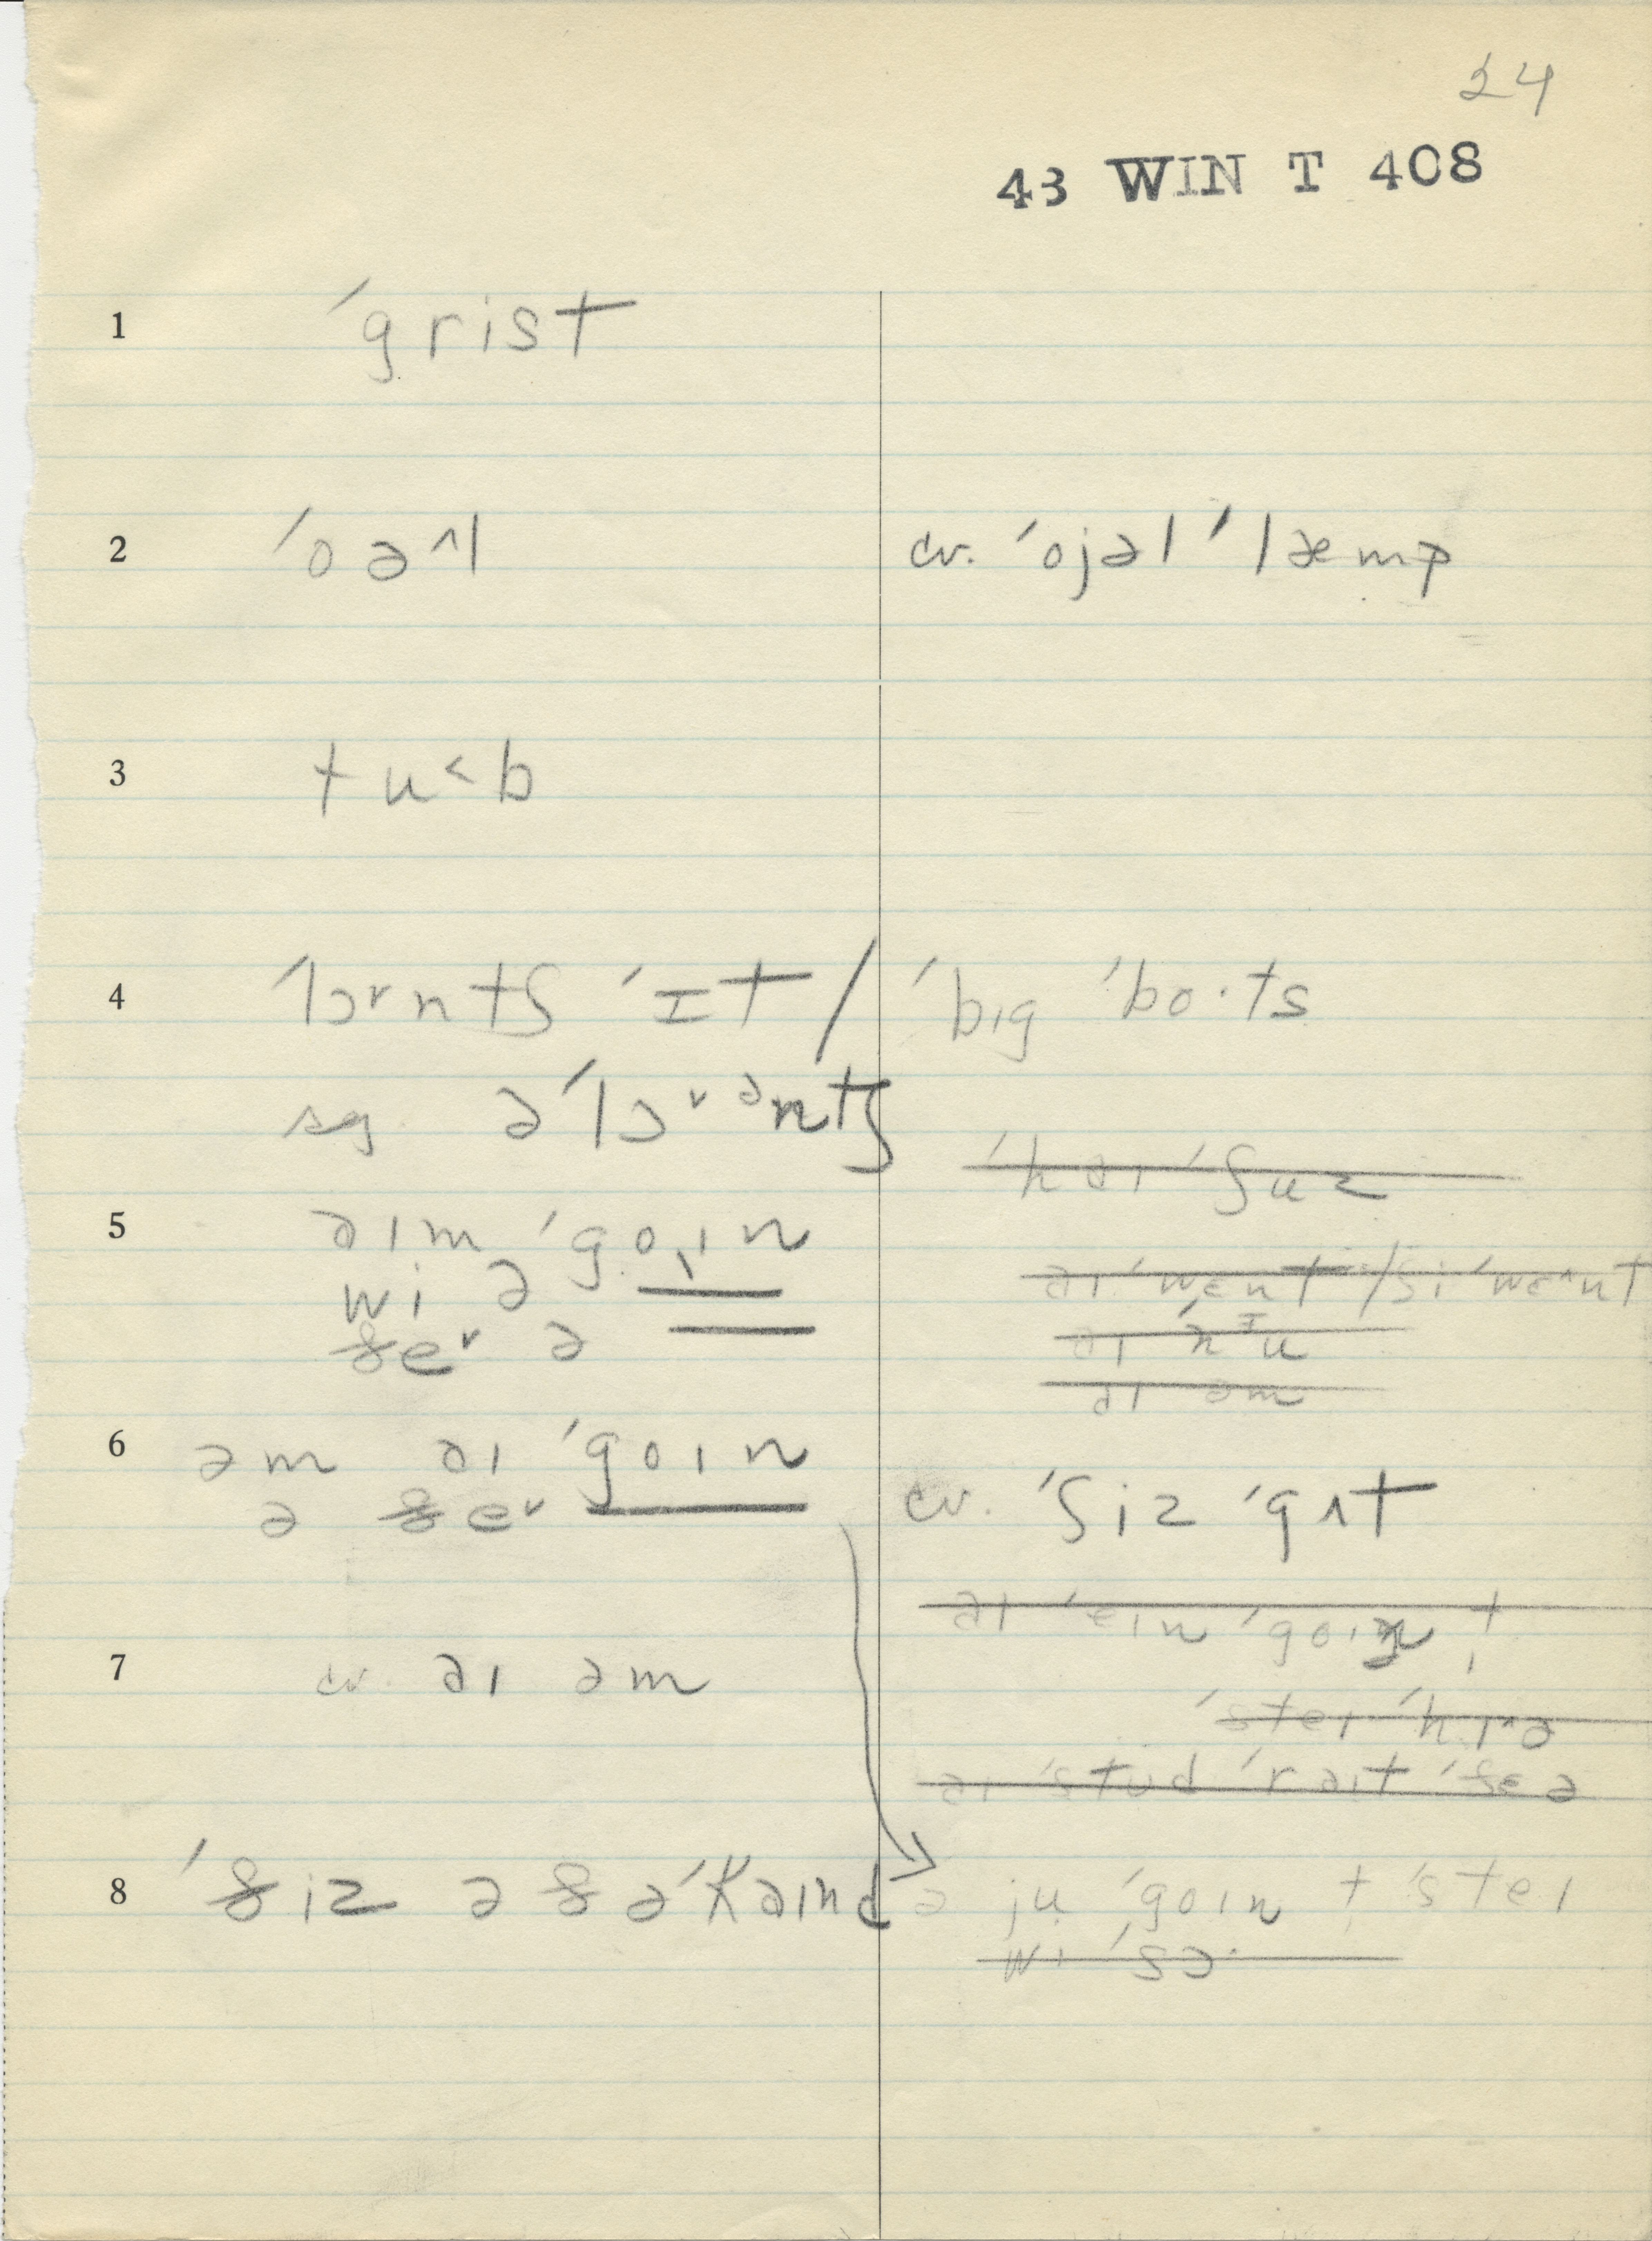 24
43 WIN T 408
1 ˈgrist
2 ˈoə^l cv. ˈojəl ˈlæmp
3 tu<b
4 ˈlɔ˅ntʃ ˈɪt / ˈbɪg ˈbo·ts
sg əˈlɔ˅ᵊntʃ
ˈhaɪ ˈʃuz
5 əɪm ˈgoɪn
wi ə
ðe˅ ə
əɪ ˈwɛnt / ʃi ˈwɛ^nt
əɪ əm
6 əm əɪ ˈgoɪn
ə ðe˅
cv. ˈʃiz ˈgʌt
əɪ ˈeɪn ˈgoɪn t
7 cv. əɪ əm
ˈsteɪ ˈhɪ^ə
əɪ ˈstud ˈrəɪt ˈðɛə
8 ˈðiz ə ðəˈkəɪnd
ə ju ˈgoɪn t ˈsteɪ
wi ˈsɔ·